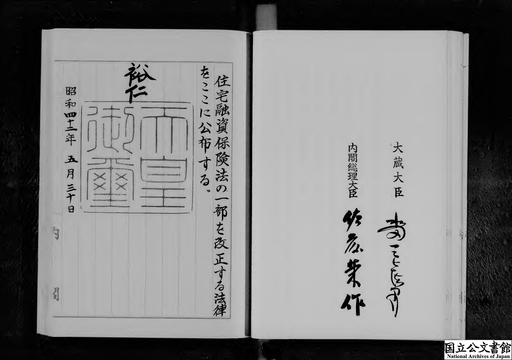 大蔵大臣
水田三喜男
内閣総理大臣
佐藤榮作
住宅融資保険法の一部を改正する法律
をここに公布する。
裕仁
天皇
御璽
昭和四十三年 五月三十日
内閣
国立公文書館
National Archives of Japan